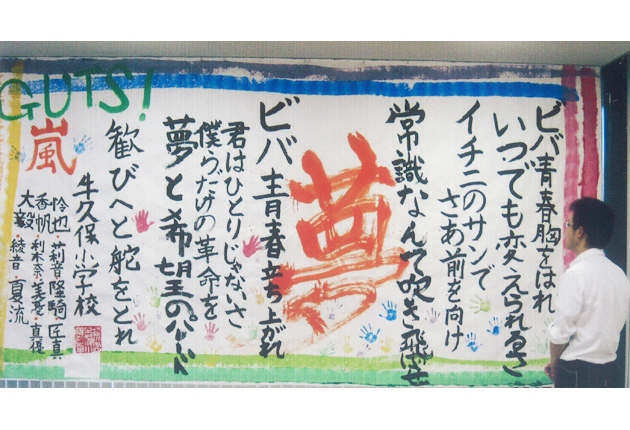 ビバ青春胸をはれ
いつでも変えられるさ
イチニのサンで
さあ前を向け
常識なんて吹き飛せ
夢
ビバ青春立ち上がれ
君はひとりじゃないさ
僕らだけの革命を
夢と希望のハート
歓びへと舵をとれ
GUTS!
嵐
牛久保小学校
怜也・莉音・隆騎・匠真
香帆・利木奈・
大毅・綾音・夏流